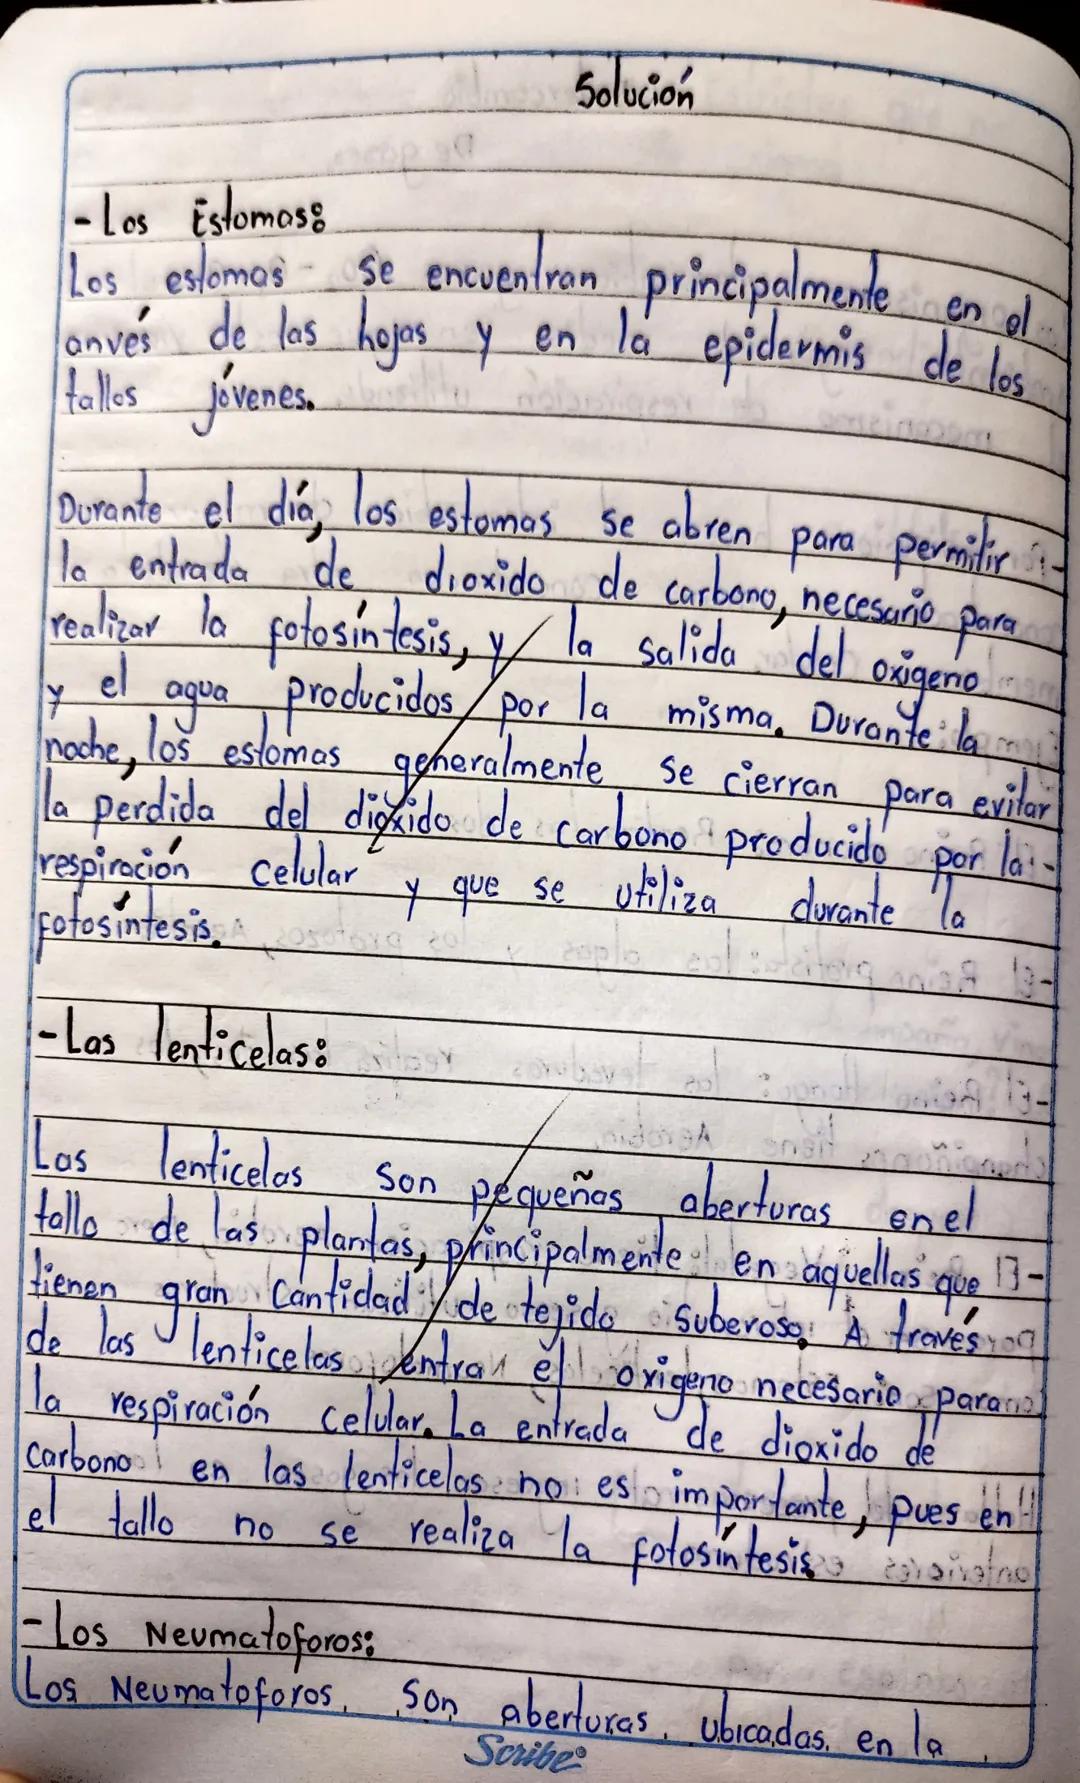 Solución
- Los Estomas:
Los estomas - se encuentran principalmente en el
anvés de las hojas y en la epidermis de los
tallos jóvenes.
Durante el diá, los estomas se abren para permitir
la entrada de dioxido de carbono, necesario para
realizar la fotosíntesis, y la salida del oxigeno
y el agua producidos por la misma. Durante la
noche, los estomas generalmente se cierran para evitar
la perdida del dioxido de carbono producido por la
respiración celular y que se utiliza durante la
fotosíntesis.
- Las lenticelas:
Las lenticelas son pequeñas aberturas en el
tallo de las plantas, principalmente en aquellas que
tienen gran cantidad de tejido suberoso. A través
de las lenticelas entra el oxigeno necesario para
la respiración celular. La entrada de dioxido de
carbono en las lenticelas no es importante, pues en
el tallo no se realiza la fotosíntesis.
- Los Neumatoforos:
Los Neumatoforos, son aberturas ubicadas en la
Scribe